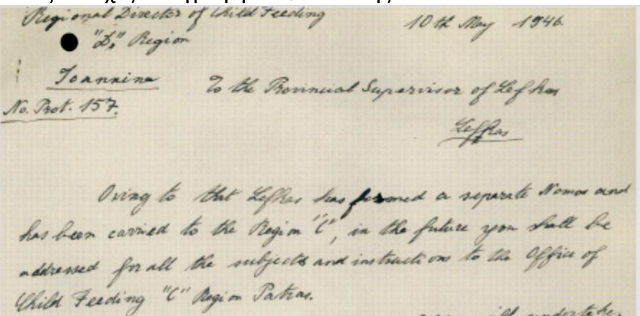 Regional Director of Child Feeding
10th May 1946.
"D," Region
Ioannina
To the Provincial Supervisor of Lefkas
No. Prot. 157.
Lefkas
Owing to that Lefkas has formed a separate Nomos and
has been carried to the Region "C", in the future you shall be
addressed for all the subjects and instructions to the Office of
Child Feeding "C" Region Patras.
will undertake,